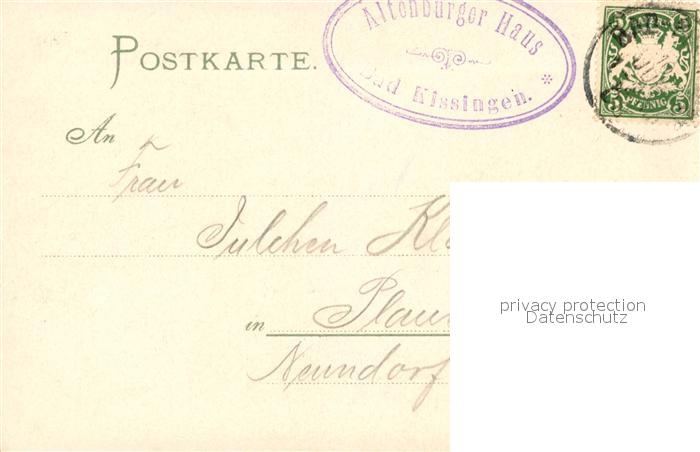 POSTKARTE.
Altenburger Haus
Bad Kissingen. *
BAD
5 5
PFENNIG
5 5
An
Frau
Julchen
in
Neundorf
privacy protection
Datenschutz